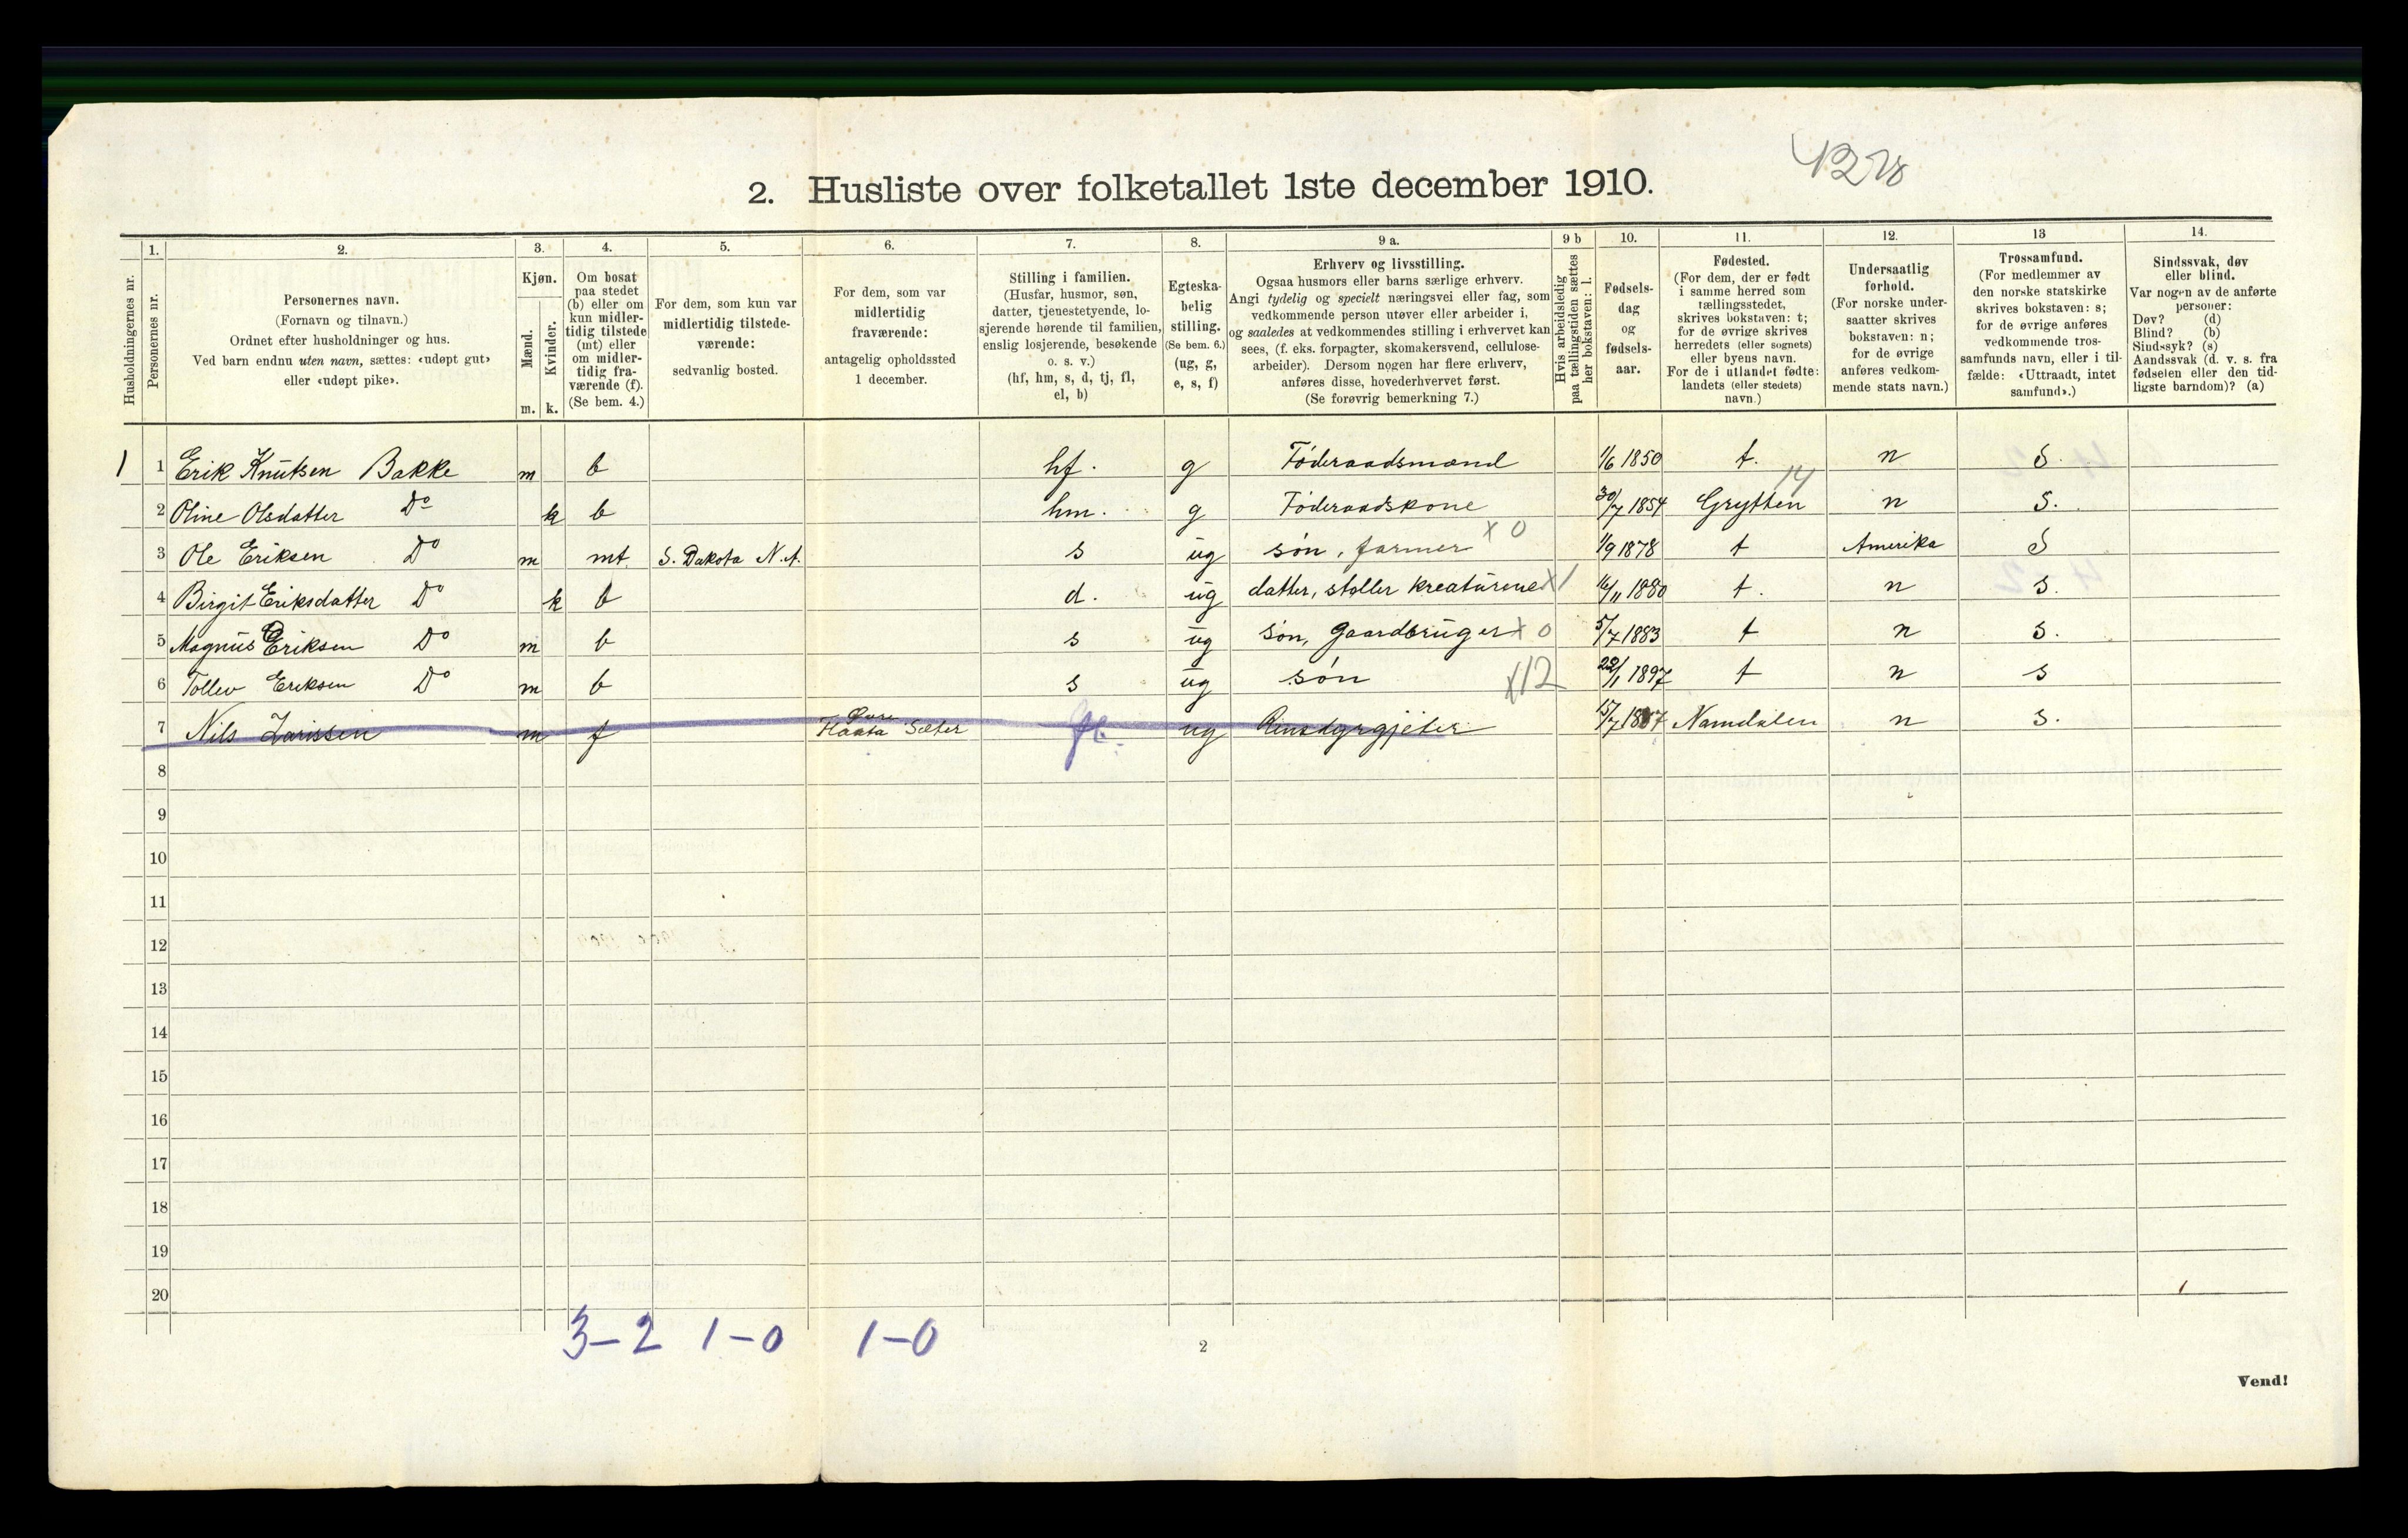 4228
2. Husliste over folketallet 1ste december 1910.
Husholdningernes nr.
1.
Personernes nr.
2.
Personernes navn.
(Fornavn og tilnavn.)
Ordnet efter husholdninger og hus.
Ved barn endnu uten navn, sættes: «udøpt gut»
eller «udøpt pike».
3.
Kjøn.
Mænd.
Kvinder.
m. k.
4.
Om bosat
paa stedet
(b) eller om
kun midler-
tidig tilstede
(mt) eller
om midler-
tidig fra-
værende (f).
(Se bem. 4.)
5.
For dem, som kun var
midlertidig tilstede-
værende:
sedvanlig bosted.
6.
For dem, som var
midlertidig
fraværende:
antagelig opholdssted
1 december.
7.
Stilling i familien.
(Husfar, husmor, søn,
datter, tjenestetyende, lo-
sjerende hørende til familien,
enslig losjerende, besøkende
o. s. v.)
(hf, hm, s, d, tj, fl,
el, b)
8.
Egteska-
belig
stilling.
(Se bem. 6.)
(ug, g,
e, s, f)
9 a.
Erhverv og livsstilling.
Ogsaa husmors eller barns særlige erhverv.
Angi tydelig og specielt næringsvei eller fag, som
vedkommende person utøver eller arbeider i,
og saaledes at vedkommendes stilling i erhvervet kan
sees, (f. eks. forpagter, skomakersvend, cellulose-
arbeider). Dersom nogen har flere erhverv,
anføres disse, hovederhvervet først.
(Se forøvrig bemerkning 7.)
9 b
Hvis arbeidsledig
paa tællingstiden sættes
her bokstaven: l.
10.
Fødsels-
dag
og
fødsels-
aar.
11.
Fødested.
(For dem, der er født
i samme herred som
tællingsstedet,
skrives bokstaven: t;
for de øvrige skrives
herredets (eller sognets)
eller byens navn.
For de i utlandet fødte:
landets (eller stedets)
navn.)
12.
Undersaatlig
forhold.
(For norske under-
saatter skrives
bokstaven: n;
for de øvrige
anføres vedkom-
mende stats navn.)
13
Trossamfund.
(For medlemmer av
den norske statskirke
skrives bokstaven: s;
for de øvrige anføres
vedkommende tros-
samfunds navn, eller i til-
fælde: «Uttraadt, intet
samfund».)
14.
Sindssvak, døv
eller blind.
Var nogen av de anførte
personer:
Døv? (d)
Blind? (b)
Sindssyk? (s)
Aandssvak (d. v. s. fra
fødselen eller den tid-
ligste barndom)? (a)
1 1 Erik Knutsen Bakke m b hf. g Føderaadsmand 1/6 1850 t. n S.
2 Oline Olsdatter Do k b hm. g Føderaadskone 30/7 1854 Grytten 14 n S.
3 Ole Eriksen Do m mt. S. Dakota N.A. s ug søn, farmer x 0 1/9 1878 t Amerika S
4 Birgit Eriksdatter Do k b d. ug datter, steller kreaturene x1 16/11 1880 t. n S.
5 Magnus Eriksen Do m b s ug søn, Gaardbruger x 0 5/7 1883 t n S.
6 Tollev Eriksen Do m b s ug søn x12 22/1 1897 t n s
7 Nils Larissen m f Øvre Haata Sæter ug Rensdyrgjeter 15/7 1887 Namdalen n S.
8
9
10
11
12
13
14
15
16
17
18
19
20
3-2 1-0 1-0
2
Vend!